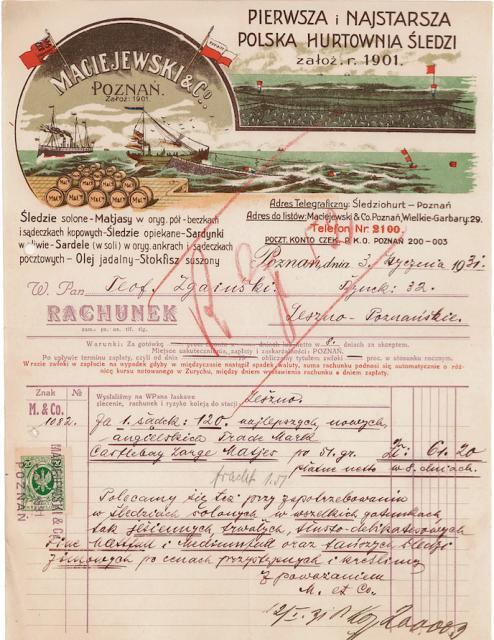 PIERWSZA i NAJSTARSZA
POLSKA HURTOWNIA ŚLEDZI
załoz. r. 1901.
MACIEJEWSKI & Co
POZNAŃ.
Założ: 1901.
Adres Telegraficzny: Śledziohurt – Poznań
Adres do listów: Maciejewski & Co. Poznań, Wielkie-Garbary: 29.
Telefon Nr 2100.
POCZT. KONTO CZEK. P. K. O. POZNAŃ 200-003
Śledzie solone – Matjasy w oryg. pół-beczkach
i sądeczkach kopowych – Śledzie opiekane – Sardynki
w oliwie – Sardele (w soli) w oryg. ankrach i sądeczkach
pocztowych – Olej jadalny – Stokfisz suszony
Poznań, dnia 3. stycznia 1931.
W. Pan Teof. Zgaiński. Rynek: 32.
RACHUNEK Leszno – Poznańskie.
Warunki: Za gotówkę dniach lub netto w 8. dniach za akceptem.
Miejsce uskutecznienia, zapłaty i zaskarżalności: POZNAŃ.
Po upływie terminu zapłaty, czyli od dnia 193 obliczamy tytułem zwłoki proc. w stosunku rocznym.
Wrazie zwłoki w zapłacie na wypadek gdyby w międzyczasie nastąpił spadek waluty, suma rachunku podnosi się automatycznie o róż-
nicę kursu notowanego w Zurychu, między dniem wystawienia rachunku a dniem zapłaty.
Znak №
M. & Co.
1082.
Wysłaliśmy na WPana łaskawe
zlecenie, rachunek i ryzyko koleją do stacji Leszno.
Za 1. sądek: 120. najlepszych, nowych,
angielskich Trade Mark
Castlebay Large Matjes po 51. gr. Zł: 61.20
płatne netto w 8. dniach.
MACIEJEWSKI & Co.
POZNAŃ
Polecamy się też przy zapotrzebowaniu
w śledziach solonych, w wszelkich gatunkach
tak
oraz tańszych śledzi
zimowych po cenach przystępnych i kreślimy
Z poważaniem
M. et Co.